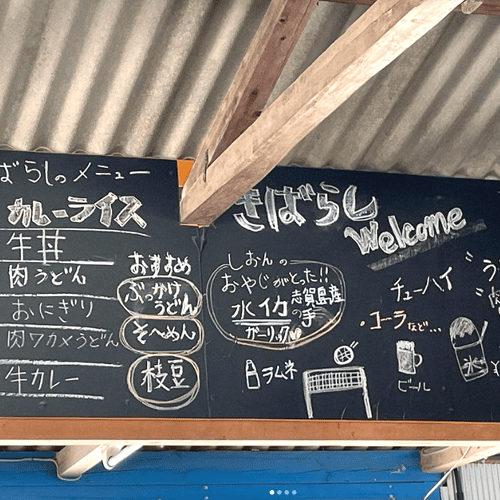 ばらしのメニュー
カレーライス
牛丼
肉うどん
おにぎり
肉ワカメうどん
牛カレー
おすすめ
ぶっかけ
うどん
そーめん
枝豆
きばらし
Welcome
しおんの
おやじがとった!!
水イカ
志賀島産
の手
ガーリック
ラムネ
チューハイ
・コーラなど...
ビール
氷